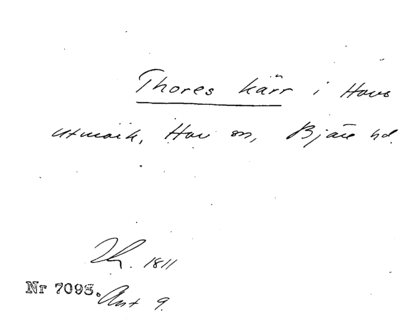 Thores kärr i Hovs
utmark, Hov sn, Bjäre hd.
1811
Nr 7095. Akt 9.